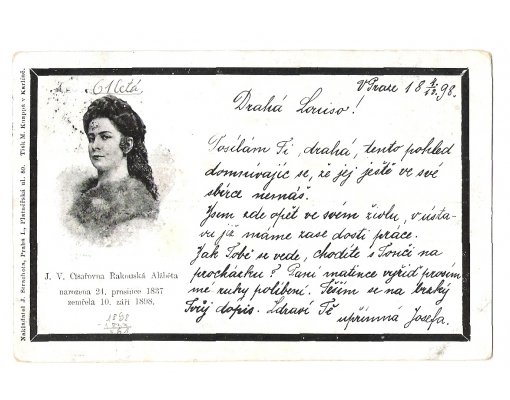 61 letá
V Praze 18 4/12 98.
Drahá Louiso!
Posílám Ti, drahá, tento pohled
domnívajíc se, že jej ještě ve své
sbírce nemáš.
Jsem zde opět ve svém živlu, v ústa-
vu již máme zase dosti práce.
Jak Tobě se vede, chodíte s Tončí na
procházku? Paní matince vyřiď prosím
mé ruky políbení. Těším se na brzký
Tvůj dopis. Zdraví Tě
upřímná Josefa.
J. V. Císařovna Rakouská Alžběta
narozena 24. prosince 1837
zemřela 10. září 1898.
1898
1837
Nakladatel J. Strachota, Praha I., Platnéřská ul. 80. Tisk M. Knappa v Karlíně.